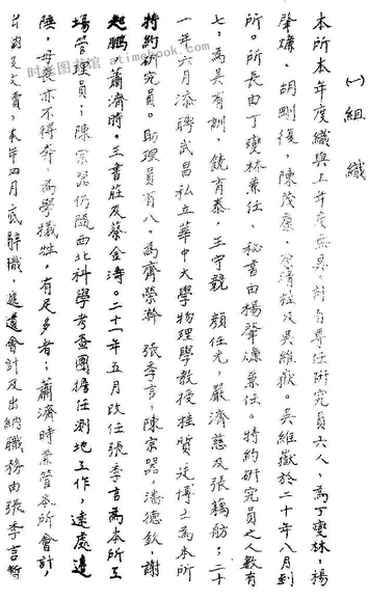 ㈠ 組織
本所本年度組織與上年度無異，計有專任研究員六人，為丁燮林，楊
肇燫，胡剛復，陳茂康，潘祖及吳維嶽。吳維嶽於二十年八月到
所。所長由丁燮林兼任，秘書由楊肇燫兼任。特約研究員之人數有
七，為吳有訓，饒育泰，王守競，顏任光，嚴濟慈及張繡舫；二十
一年六月添聘武昌私立華中大學物理學教授桂質廷博士為本所
特約研究員。助理員有八，為齊榮瀚 張季言，陳宗器，潘德欽，謝
起鵬，蕭濟時，王書莊及蔡金濤。二十一年五月改任張季言為本所工
場管理員；陳宗器仍隨西北科學考查團擔任測地工作，遠處邊
陲，母喪亦不得奔，為學犧牲，有足多者；蕭濟時業管本所會計，
文賣，本年四月底辭職，遺會計及出納職務由張季言暫
时光图书馆
atimebook.com